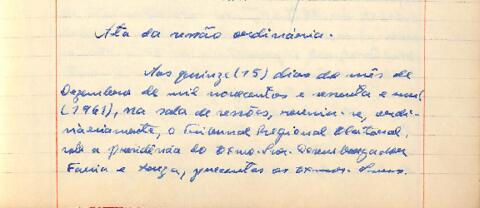 Ata da sessão ordinária.
Aos quinze (15) dias do mês de
Dezembro de mil novecentos e sessenta e um
(1961), na sala de sessões, reuniu-se, ordi-
nàriamente, o Tribunal Regional Eleitoral,
sob a presidência do Exmo. Snr. Desembargador
Faria e Souza, presentes os Exmos. Snrs.